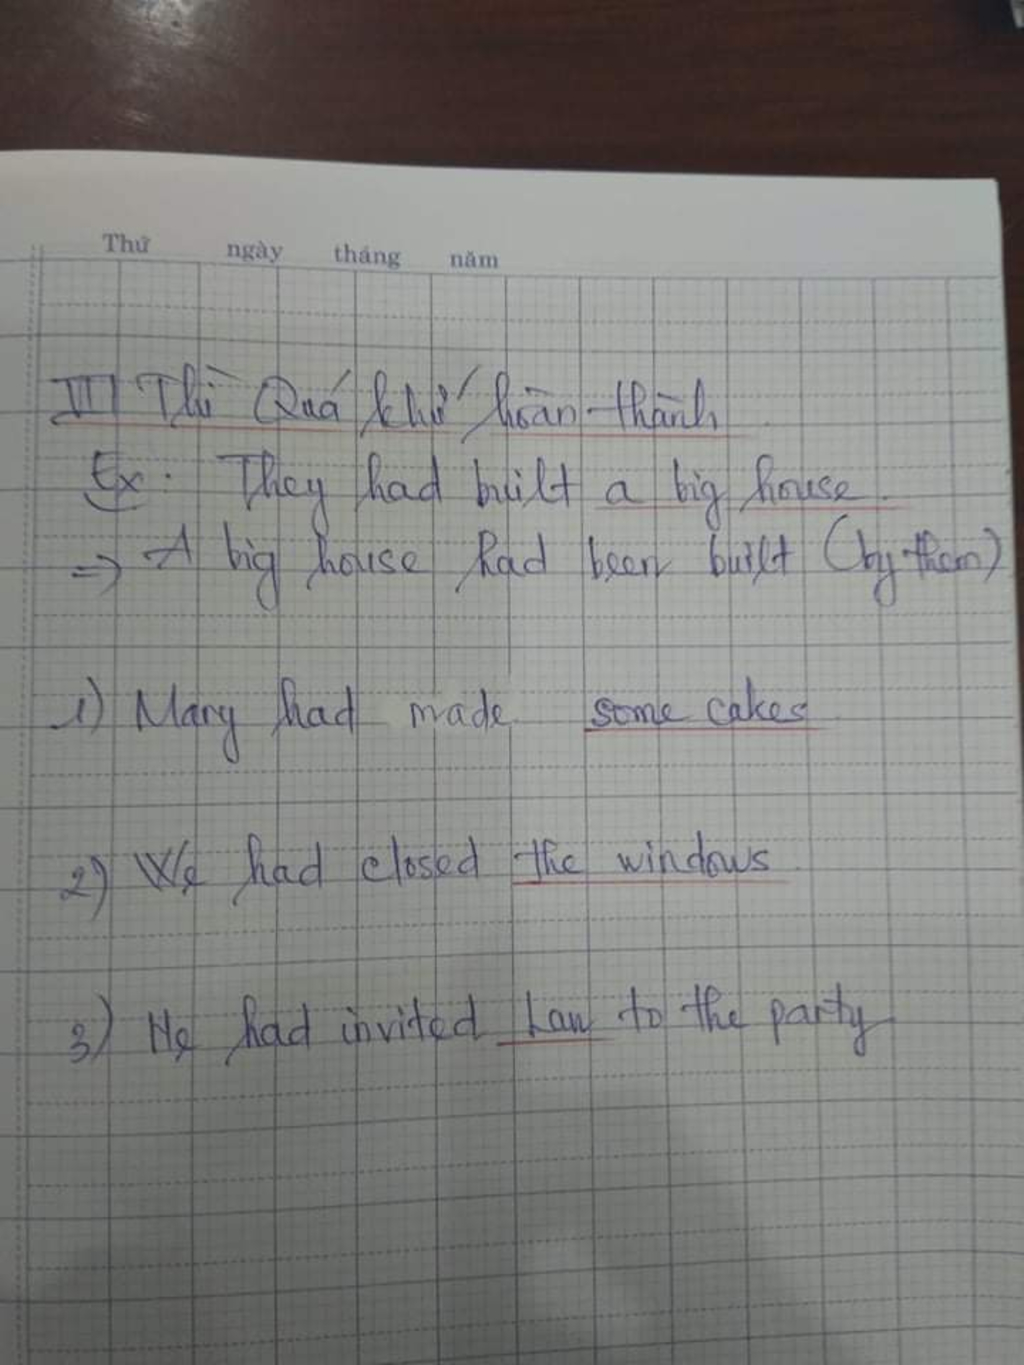 Thứ ngày tháng năm
III) Thì Quá khứ hoàn thành
Ex: They had built a big house.
=> A big house had been built (by them)
1) Mary had made some cakes
2) We had closed the windows
3) He had invited Lan to the party